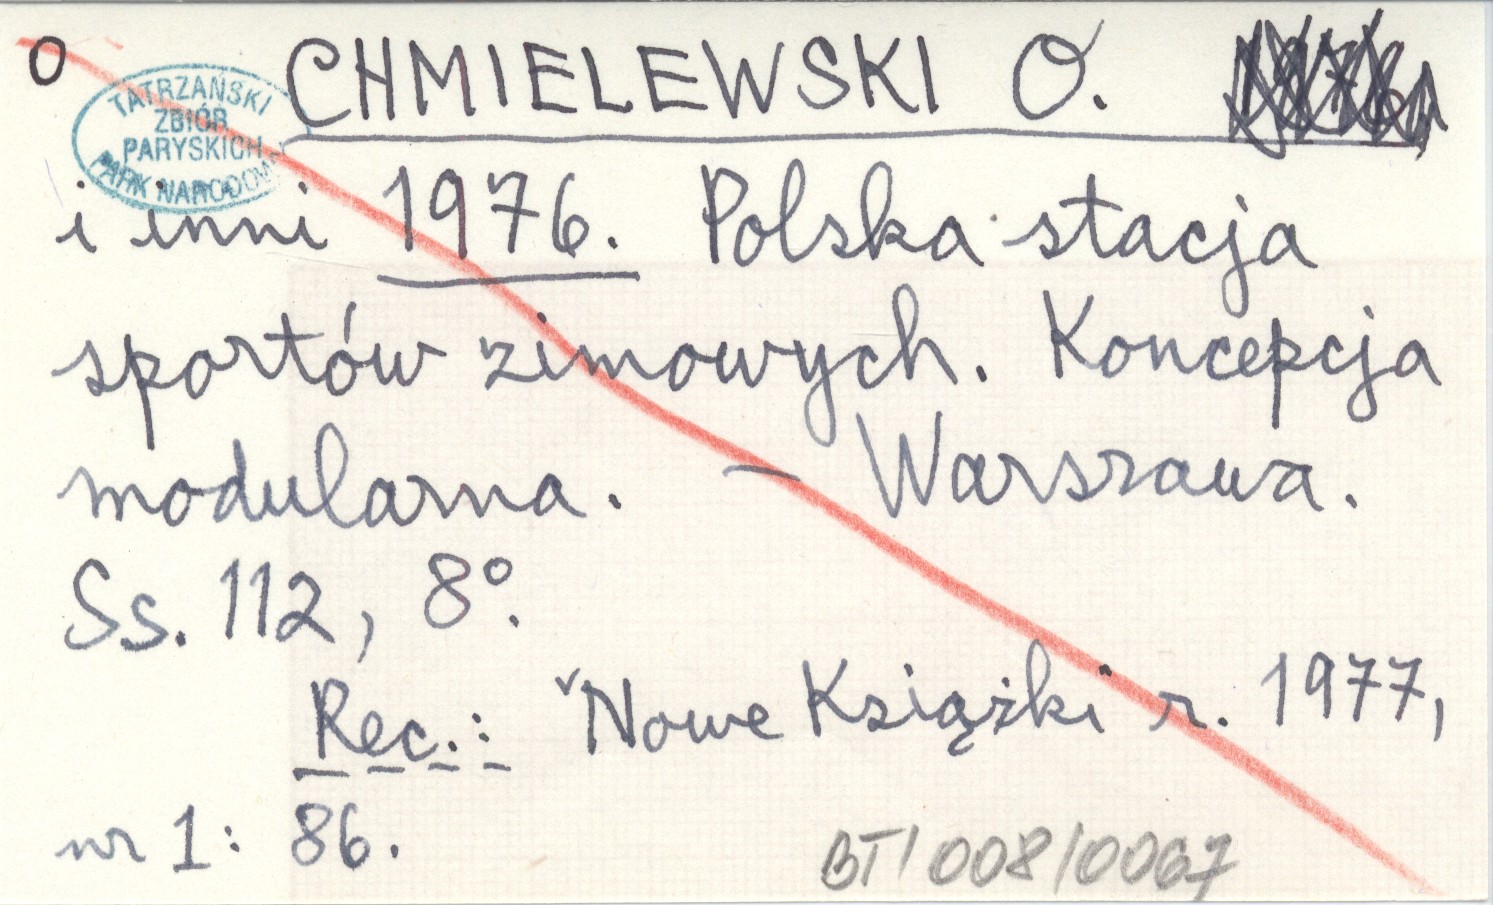 O CHMIELEWSKI O.
TATRZAŃSKI
ZBIÓR
PARYSKICH
PARK NARODOWY
i inni 1976. Polska stacja
sportów zimowych. Koncepcja
modularna. — Warszawa.
Ss. 112, 8°.
Rec.: Nowe Książki r. 1977,
nr 1: 86.
BT/008/0067